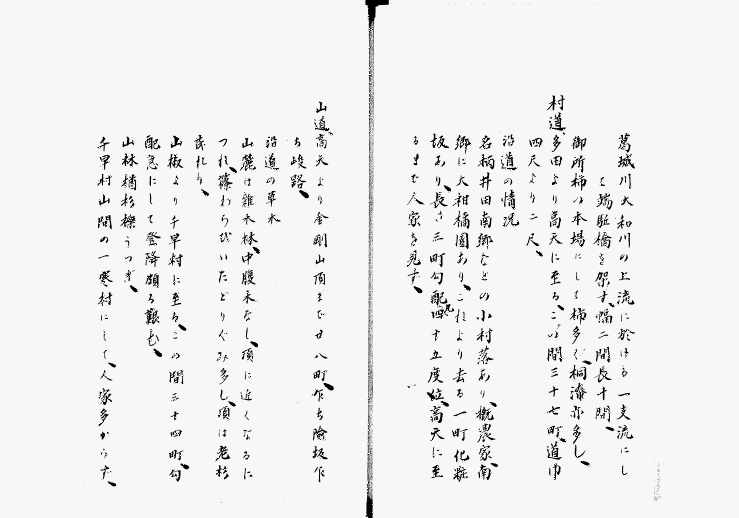 葛城川大和川の上流に於ける一支流にし
て端駐橋を架す、幅二間長十間、
御所柿の本場にして柿多く、桐漆亦多し、
村道、多田より高天に至る、この間三十七町、道巾
四尺より二尺、
沿道の情況
名柄井田南郷などの小村落あり、概農家、南
郷に大柑橘園あり、これより去る一町化粧
坂あり、長さ三町勾配四十五度位、高天に至
るまで人家を見ず、
山道、高天より金剛山頂まで廿八町、乍ち険坂乍
ち岐路、
沿道の草木
山麓は雑木林、中腹木なし、頂に近くなるに
つれ、篠わらびいたどりぐみ多し、頂は老杉
山椒より千早村に至る、この間三十四町、勾
配急にして登降頗る艱む、
山林楢杉櫟うつぎ、
千早村山間の一寒村にして、人家多からず、